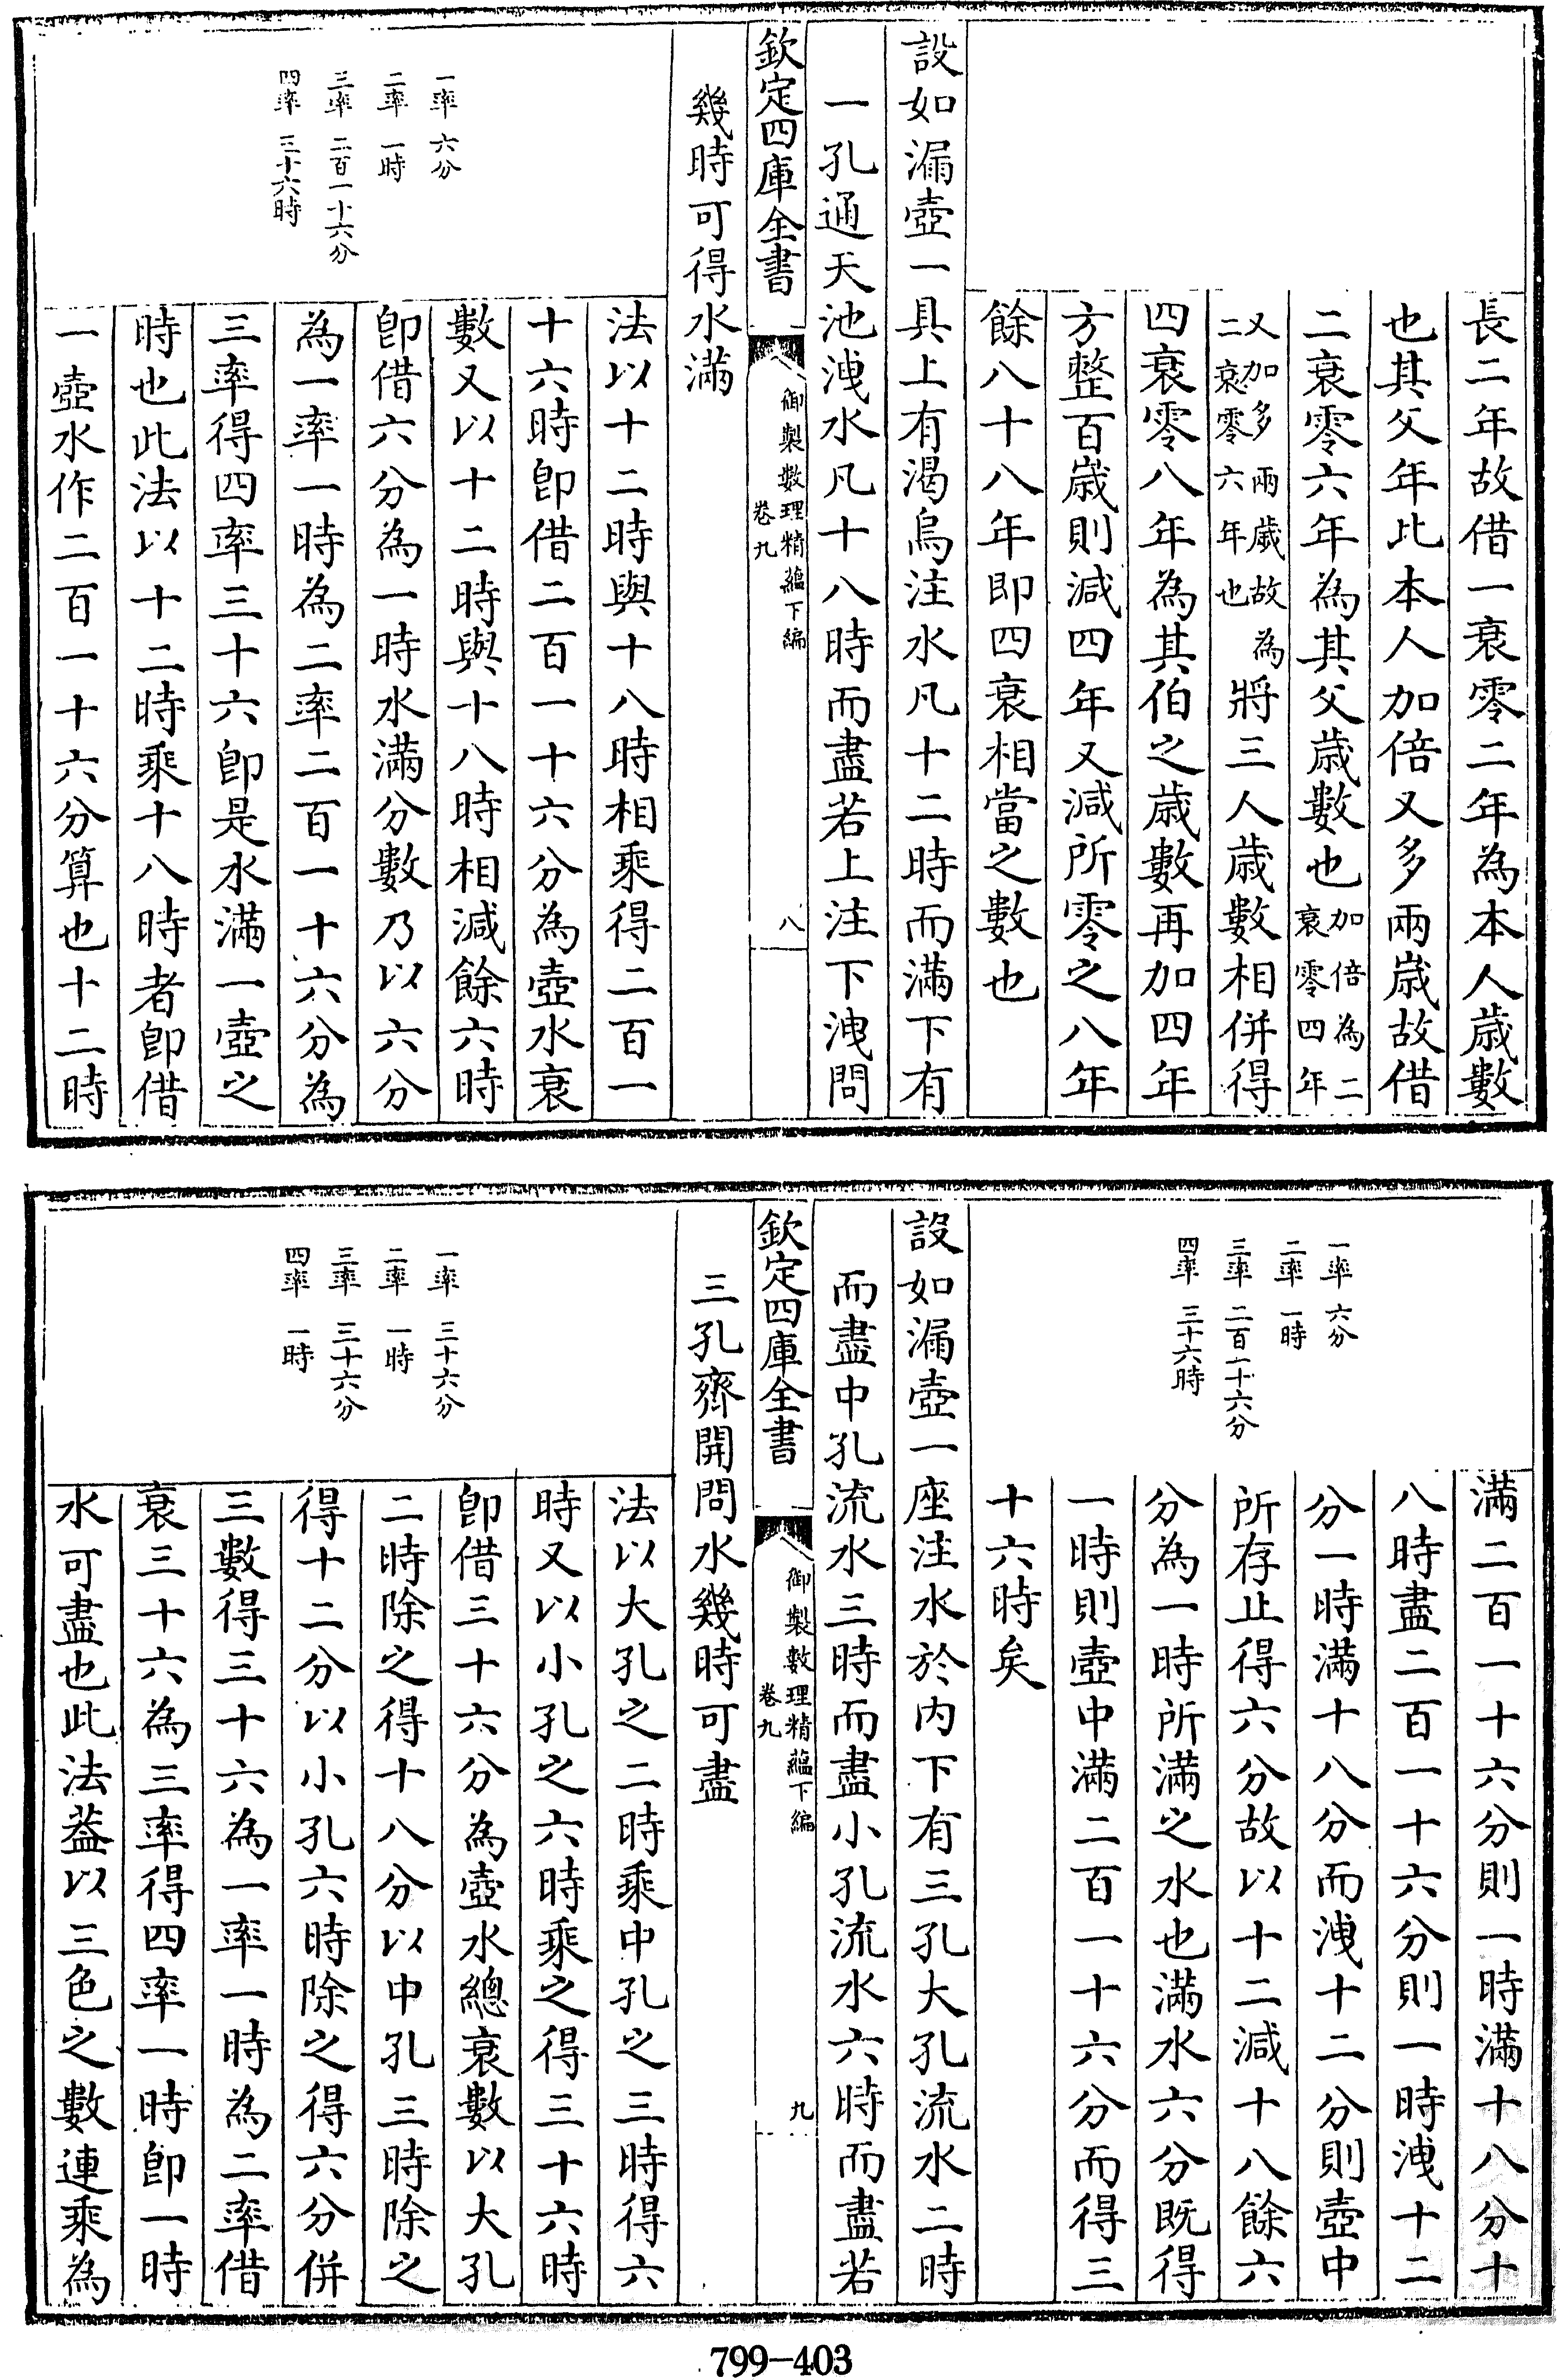 長二年故借一衰零二年為本人歲數
也其父年比本人加倍又多兩歲故借
二衰零六年為其父歲數也加倍為二衰零四年
又加多兩歲故為二衰零六年也將三人歲數相併得
四衰零八年為其伯之歲數再加四年
方整百歲則減四年又減所零之八年
餘八十八年即四衰相當之數也
設如漏壺一具上有渴烏注水凡十二時而滿下有
一孔通天池洩水凡十八時而盡若上注下洩問
欽定四庫全書
御製數理精蘊下編
卷九
八
幾時可得水滿
一率 六分
二率 一時
三率 二百一十六分
四率 三十六時
法以十二時與十八時相乘得二百一
十六時卽借二百一十六分為壺水衰
數又以十二時與十八時相減餘六時
卽借六分為一時水滿分數乃以六分
為一率一時為二率二百一十六分為
三率得四率三十六卽是水滿一壺之
時也此法以十二時乘十八時者卽借
一壺水作二百一十六分算也十二時
一率 六分
二率 一時
三率 二百一十六分
四率 三十六時
滿二百一十六分則一時滿十八分十
八時盡二百一十六分則一時洩十二
分一時滿十八分而洩十二分則壺中
所存止得六分故以十二減十八餘六
分為一時所滿之水也滿水六分既得
一時則壺中滿二百一十六分而得三
十六時矣
設如漏壺一座注水於内下有三孔大孔流水二時
而盡中孔流水三時而盡小孔流水六時而盡若
欽定四庫全書
御製數理精蘊下編
卷九
九
三孔齊開問水幾時可盡
一率 三十六分
二率 一時
三率 三十六分
四率 一時
法以大孔之二時乘中孔之三時得六
時又以小孔之六時乘之得三十六時
卽借三十六分為壺水總衰數以大孔
二時除之得十八分以中孔三時除之
得十二分以小孔六時除之得六分併
三數得三十六為一率一時為二率借
衰三十六為三率得四率一時卽一時
水可盡也此法葢以三色之數連乘為
799-403